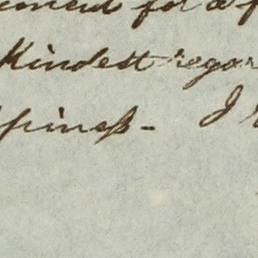 for a
Kindest regar
ppiness - I